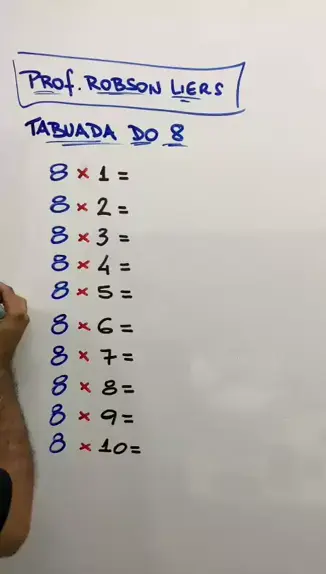 PROF. ROBSON LIERS
TABUADA DO 8
8 × 1 =
8 × 2 =
8 × 3 =
8 × 4 =
8 × 5 =
8 × 6 =
8 × 7 =
8 × 8 =
8 × 9 =
8 × 10 =